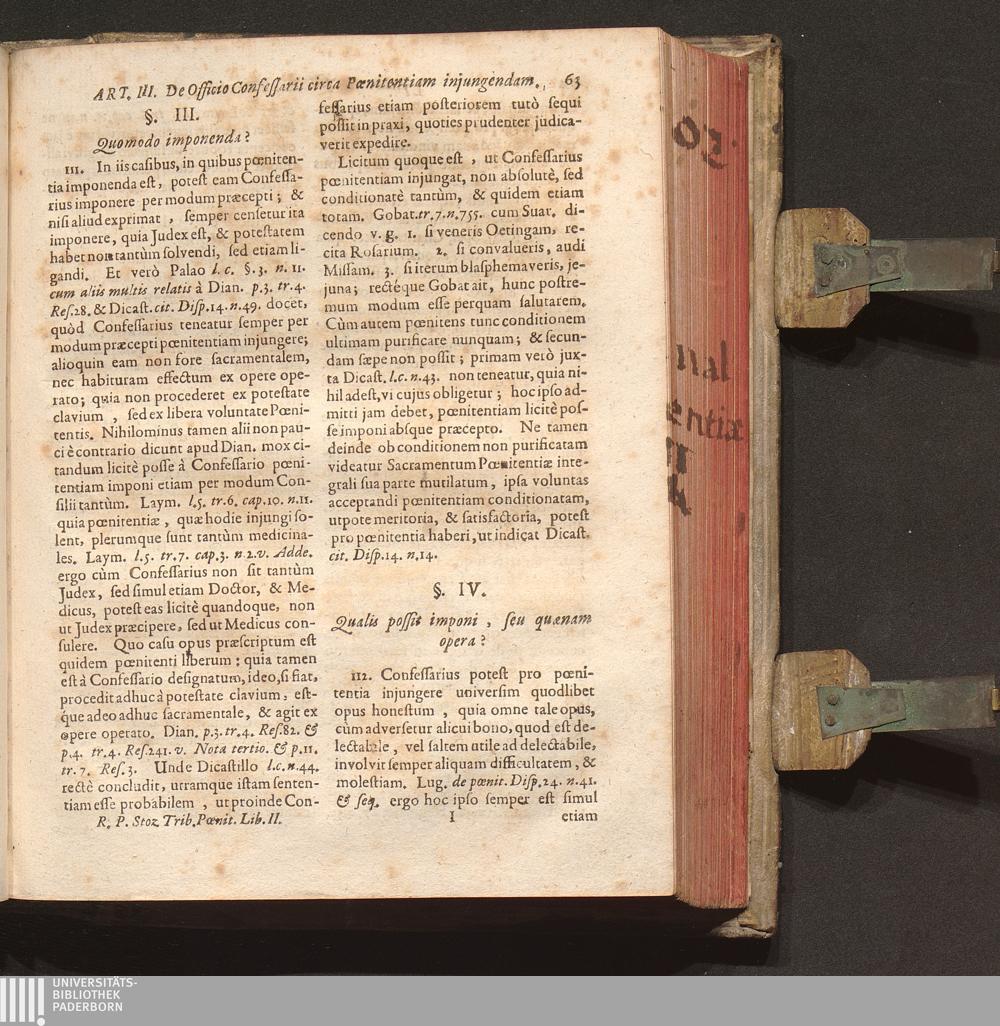 ART. III. De Officio Confeſſarii circa Pœnitentiam injungendam. 63
§. III.
Quomodo imponenda?
111. In iis caſibus, in quibus pœniten-
tia imponenda eſt, poteſt eam Confeſſa-
rius imponere per modum præcepti; &
niſi aliud exprimat, ſemper cenſetur ita
imponere, quia Judex eſt, & poteſtatem
habet non tantùm ſolvendi, ſed etiam li-
gandi. Et verò Palao l. c. §. 3. n. 11.
cum aliis multis relatis à Dian. p. 3. tr. 4.
Reſ. 28. & Dicaſt. cit. Diſp. 14. n. 49. docet,
quòd Confeſſarius teneatur ſemper per
modum præcepti pœnitentiam injungere;
alioquin eam non fore ſacramentalem,
nec habituram effectum ex opere ope-
rato; quia non procederet ex poteſtate
clavium, ſed ex libera voluntate Pœni-
tentis. Nihilominus tamen alii non pau-
ci è contrario dicunt apud Dian. mox ci-
tandum licitè poſſe à Confeſſario pœni-
tentiam imponi etiam per modum Con-
ſilii tantùm. Laym. l. 5. tr. 6. cap. 10. n. 11.
quia pœnitentiæ, quæ hodie injungi ſo-
lent, plerumque ſunt tantùm medicina-
les. Laym. l. 5. tr. 7. cap. 3. n. 2. v. Adde.
ergo cùm Confeſſarius non ſit tantùm
Judex, ſed ſimul etiam Doctor, & Me-
dicus, poteſt eas licitè quandoque, non
ut Judex præcipere, ſed ut Medicus con-
ſulere. Quo caſu opus præſcriptum eſt
quidem pœnitenti liberum: quia tamen
eſt à Confeſſario deſignatum, ideo, ſi fiat,
procedit adhuc à poteſtate clavium, eſt-
que adeo adhuc ſacramentale, & agit ex
opere operato. Dian. p. 3. tr. 4. Reſ. 82. &
p. 4. tr. 4. Reſ. 241. v. Nota tertio. & p. 11.
tr. 7. Reſ. 3. Unde Dicaſtillo l. c. n. 44.
rectè concludit, utramque iſtam ſenten-
tiam eſſe probabilem, ut proinde Con-
R. P. Stoz Trib. Pœnit. Lib. II.
feſſarius etiam poſteriorem tutò ſequi
poſſit in praxi, quoties prudenter judica-
verit expedire.
Licitum quoque eſt, ut Confeſſarius
pœnitentiam injungat, non abſolutè, ſed
conditionatè tantùm, & quidem etiam
totam. Gobat. tr. 7. n. 755. cum Suar. di-
cendo v. g. 1. ſi veneris Oetingam, re-
cita Roſarium. 2. ſi convalueris, audi
Miſſam. 3. ſi iterum blaſphemaveris, je-
juna; rectéque Gobat ait, hunc poſtre-
mum modum eſſe perquam ſalutarem.
Cùm autem pœnitens tunc conditionem
ultimam purificare nunquam; & ſecun-
dam ſæpe non poſſit; primam verò jux-
ta Dicaſt. l. c. n. 43. non teneatur, quia ni-
hil adeſt, vi cujus obligetur; hoc ipſo ad-
mitti jam debet, pœnitentiam licitè poſ-
ſe imponi abſque præcepto. Ne tamen
deinde ob conditionem non purificatam
videatur Sacramentum Pœnitentiæ inte-
grali ſua parte mutilatum, ipſa voluntas
acceptandi pœnitentiam conditionatam,
utpote meritoria, & ſatisfactoria, poteſt
pro pœnitentia haberi, ut indicat Dicaſt.
cit. Diſp. 14. n. 14.
§. IV.
Qualis poſſit imponi, ſeu quænam
opera?
112. Confeſſarius poteſt pro pœni-
tentia injungere univerſim quodlibet
opus honeſtum, quia omne tale opus,
cùm adverſetur alicui bono, quod eſt de-
lectabile, vel ſaltem utile ad delectabile,
involvit ſemper aliquam difficultatem, &
moleſtiam. Lug. de pœnit. Diſp. 24. n. 41.
& ſeq. ergo hoc ipſo ſemper eſt ſimul
I etiam
nal
entiæ
UNIVERSITÄTS-
BIBLIOTHEK
PADERBORN